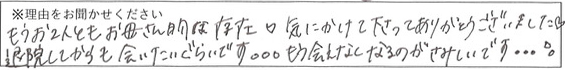 ※理由をお聞かせください
もうお2人ともお母さん的な存在□気にかけて下さってありがとうございました
退院してからも会いたいぐらいです。。。もう会えなくなるのがさみしいです…。